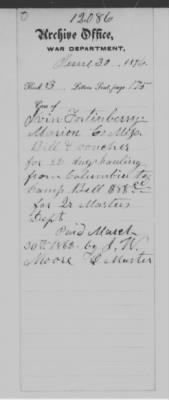 12086
Archive Office,
WAR DEPARTMENT,
June 30 1876
Book B Letters Sent, page 175
Case of
Irvin Fortinberry
Marion Co Miss
Bill & voucher
for 22 days hauling
from Columbia to
Camp Bell $88.00
for Qr Masters
Dept
Paid March
30th 1863 by J. W.
Moore Q Master